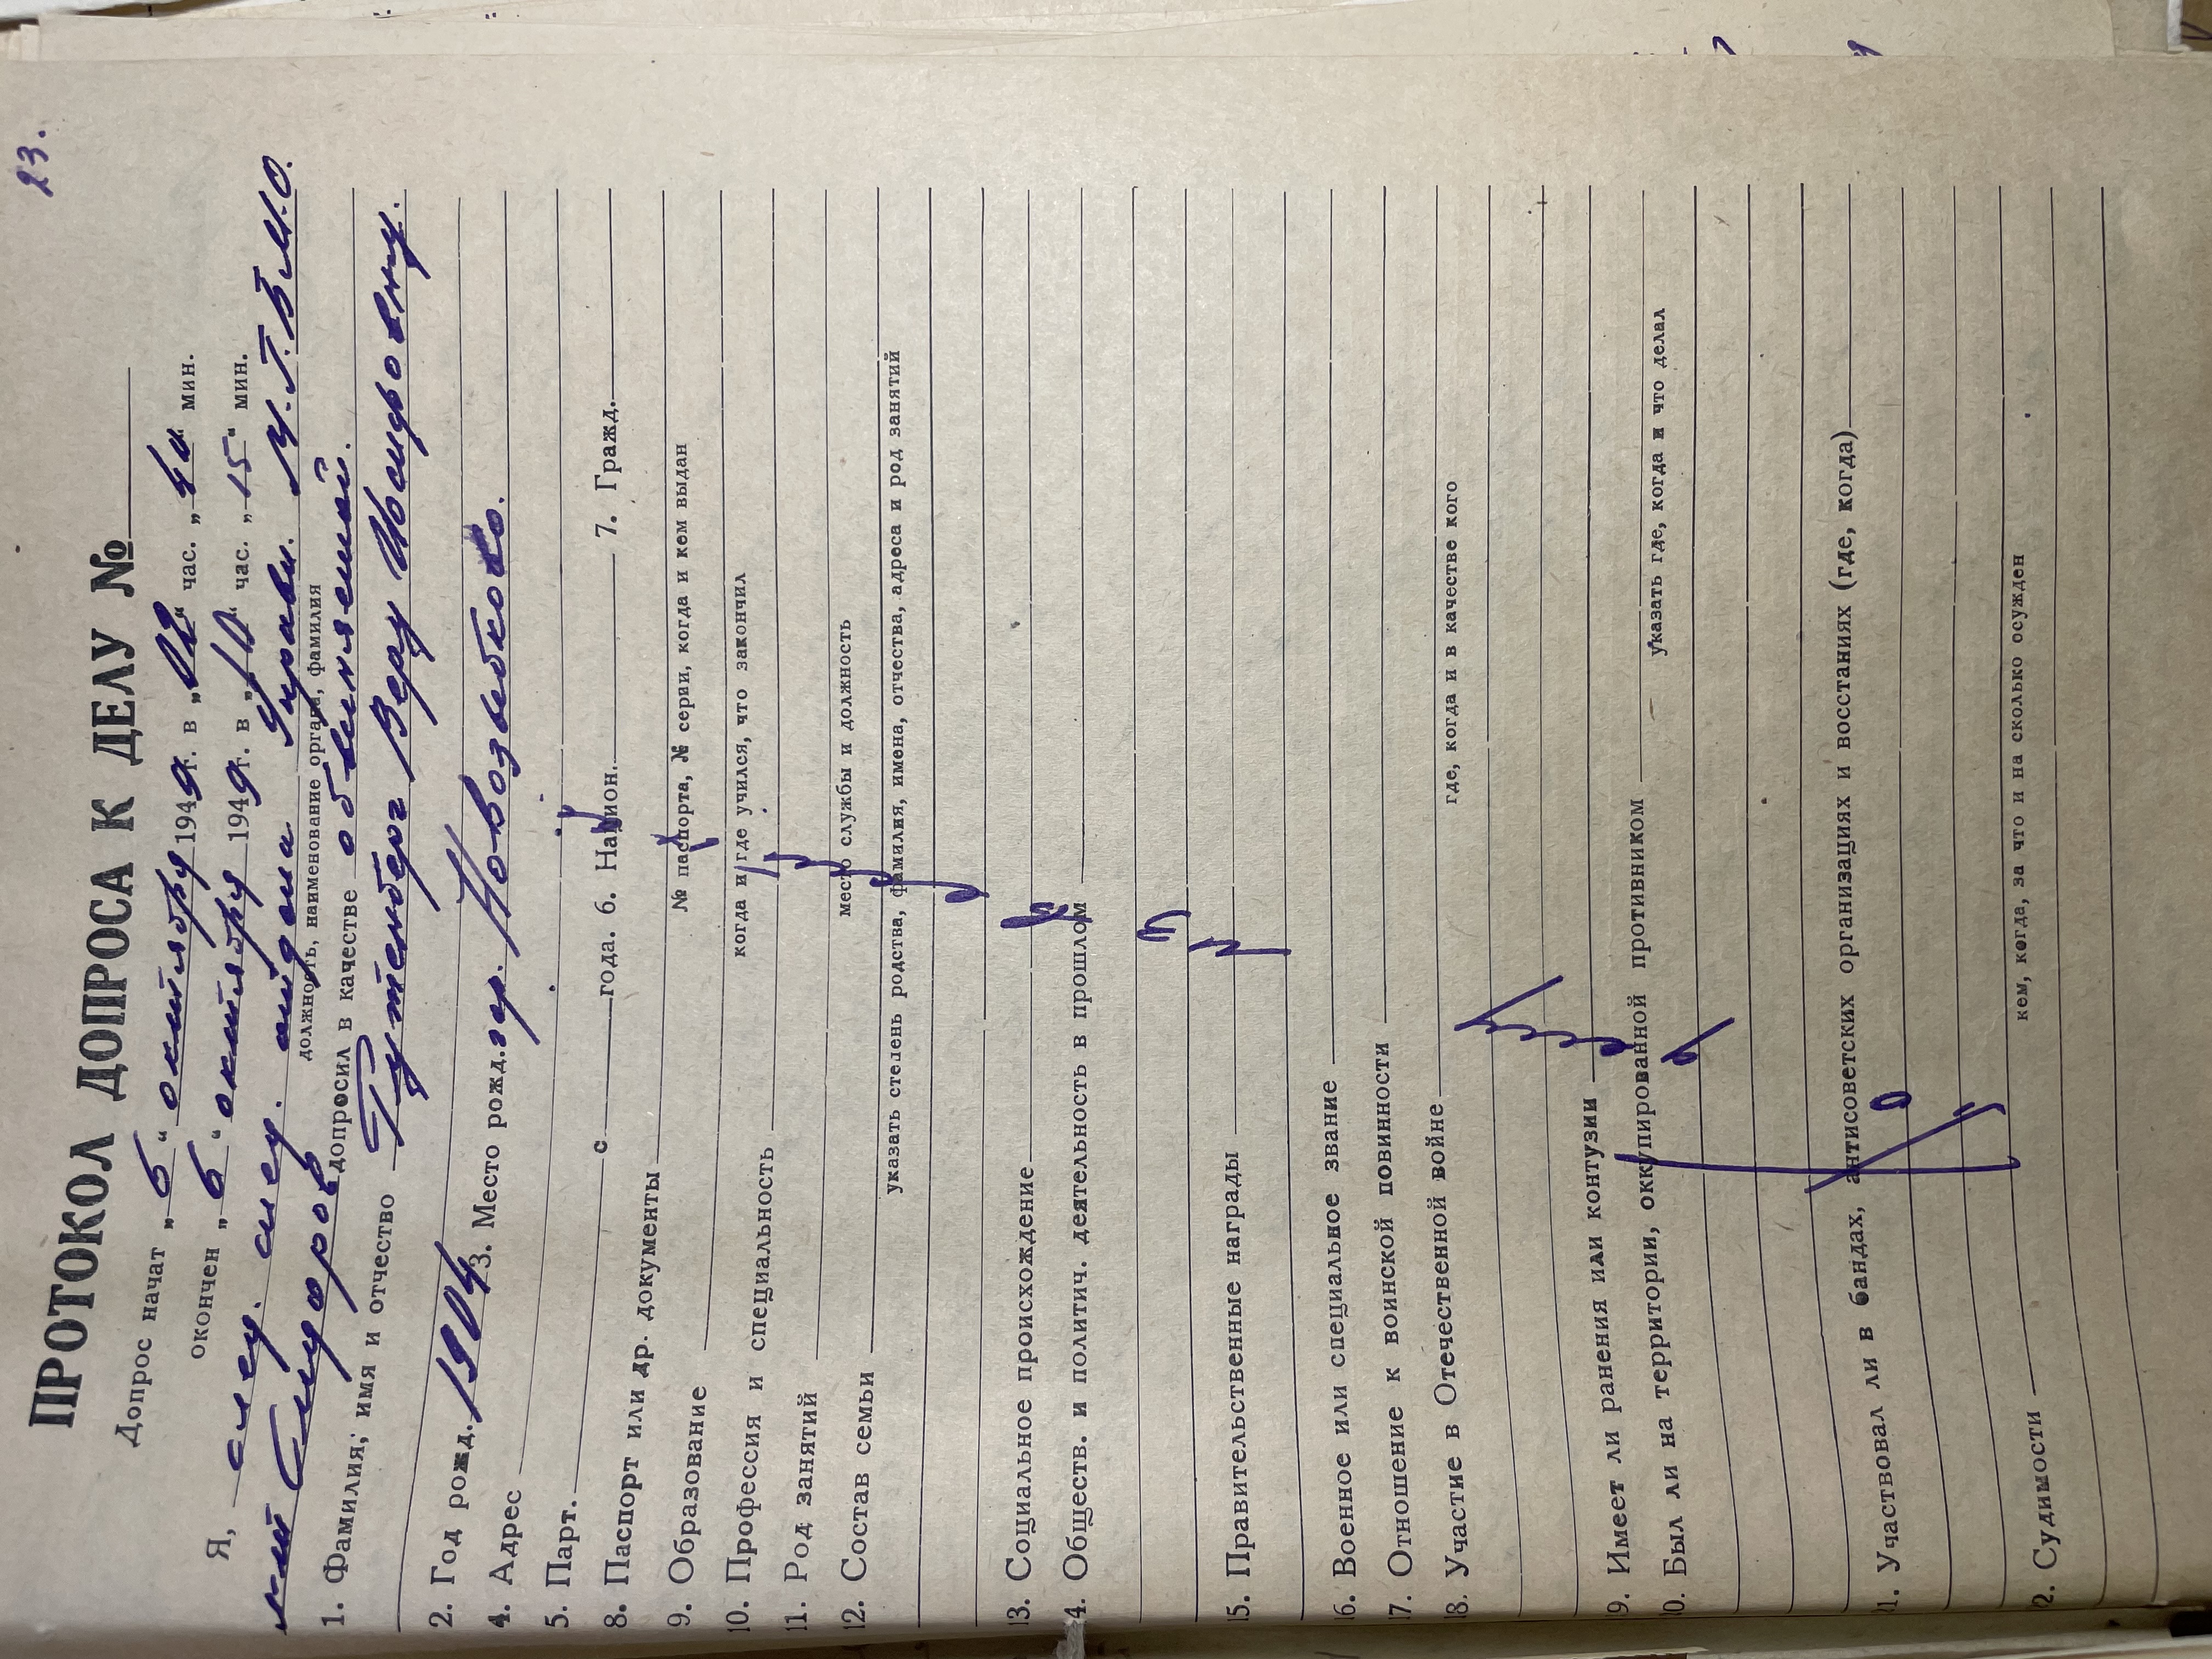 23.
ПРОТОКОЛ ДОПРОСА К ДЕЛУ №
Допрос начат „ 6 “ октября 1949 г. в „ “ час. „ 40 “ мин.
окончен „ 6 “ октября 1949 г. в „ “ час. „ 15 “ мин.
Я, след. след. отдела Управл. М.Г.Б. М.О.
должность, наименование органа, фамилия
допросил в качестве обвиняемой.
1. Фамилия; имя и отчество Гутенберг Веру Иосифовну.
2. Год рожд. 1904 3. Место рожд. гор. Новозыбково.
4. Адрес
5. Парт. с года. 6. Национ. 7. Гражд.
8. Паспорт или др. документы
№ паспорта, № серии, когда и кем выдан
9. Образование
когда и где учился, что закончил
10. Профессия и специальность
11. Род занятий
место службы и должность
12. Состав семьи
указать степень родства, фамилия, имена, отчества, адреса и род занятий
13. Социальное происхождение
4. Обществ. и политич. деятельность в прошлом
5. Правительственные награды
6. Военное или специальное звание
7. Отношение к воинской повинности
8. Участие в Отечественной войне
где, когда и в качестве кого
9. Имеет ли ранения или контузии
0. Был ли на территории, оккупированной противником
указать где, когда и что делал
1. Участвовал ли в бандах, антисоветских организациях и восстаниях (где, когда)
2. Судимости
кем, когда, за что и на сколько осужден